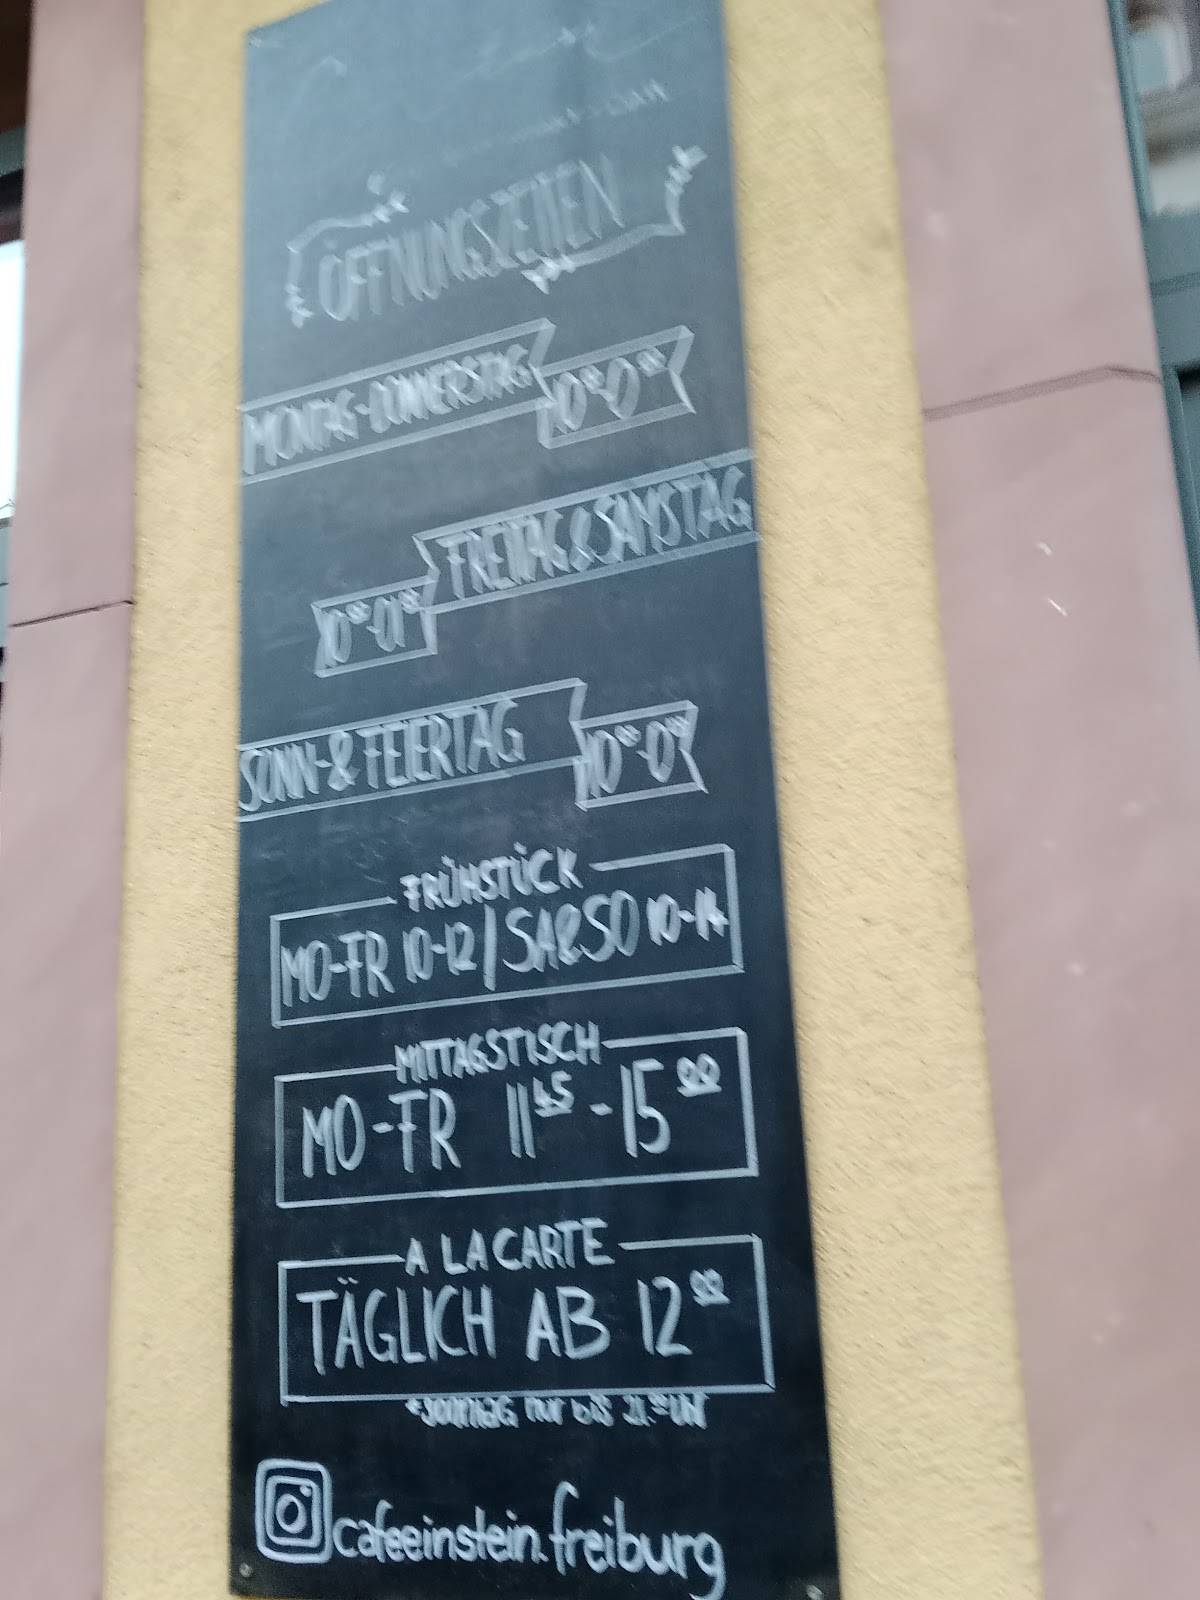 ÖFFNUNGSZEITEN
MONTAG-DONNERSTAG 10⁰⁰-0⁰⁰
FREITAG & SAMSTAG
10⁰⁰-01⁰⁰
SONN-& FEIERTAG 10⁰⁰-0⁰⁰
FRÜHSTÜCK
MO-FR 10-12 / SA&SO 10-14
MITTAGSTISCH
MO-FR 11⁴⁵-15⁰⁰
A LA CARTE
TÄGLICH AB 12⁰⁰
*SONNTAG nur bis 21.⁰⁰ Uhr
cafeeinstein.freiburg